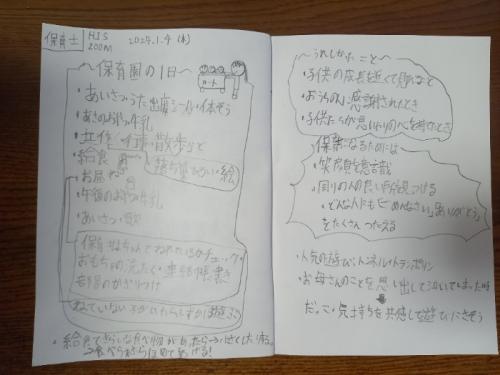 保育士
HIS
ZOOM
2024.1.4 (木)
～保育園の1日～
・あいさつ・うた 出席シール・体そう
・あさのおやつ 牛乳
・製作/行事・散歩など
・給食
絵
・お昼ね
・午後のおやつ 牛乳
・あいさつ・歌
保育 ねちゃんとねれているかチェック・
おもちゃの洗たく・連らく帳書き
部屋のかざりつけ
ねていない子がいたらしずかに遊ぶ
・給食できらいな食べ物があったら→小さくしたり
→食べられたらほめてあげる!
～うれしかったこと～
・子供の成長を近くで見れること
・おうちの人に感謝されたとき
・子供たちが思いやりの心を持てたとき
保育士になるためには
・笑顔を意識
・周りの人の良い所を見つける
・どんな人にも「ごめんなさい」「ありがとう」
をたくさんつたえる
・人気の遊び:トンネル・トランポリン
・お母さんのことを思い出して泣いてしまった時
だっこ・気持ちを共感して遊びにさそう